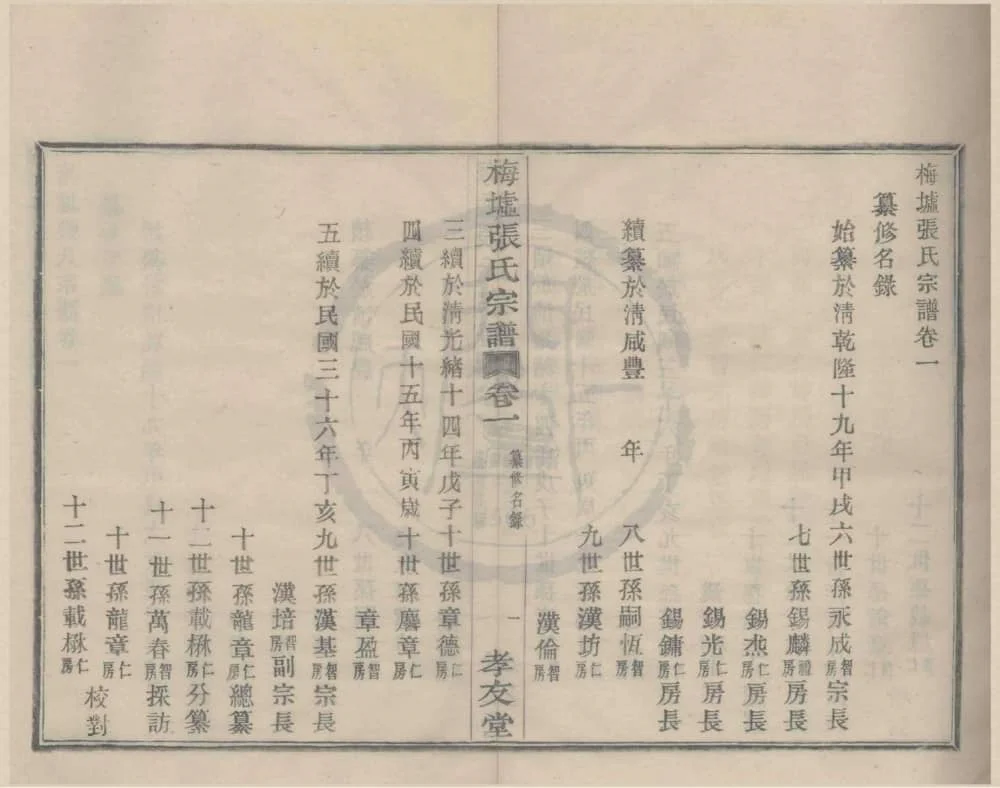 梅墟張氏宗譜卷一
纂修名錄
始纂於清乾隆十九年甲戌六世孫永成智房宗長
七世孫錫麟禮房房長
錫杰仁房房長
錫光仁房房長
錫鏞仁房房長
續纂於清咸豐 年 八世孫嗣恆智房
九世孫漢坊仁房
漢倫智房
梅墟張氏宗譜 卷一 纂修名錄 一 孝友堂
三續於清光緒十四年戊子十世孫章德仁房
四續於民國十五年丙寅歲十世孫麐章仁房
章盈智房
五續於民國三十六年丁亥九世孫漢基智房宗長
漢培智房副宗長
十世孫龍章仁房總纂
十二世孫載楙仁房分纂
十一世孫萬春智房採訪
十世孫龍章仁房
十二世孫載楙仁房
校對